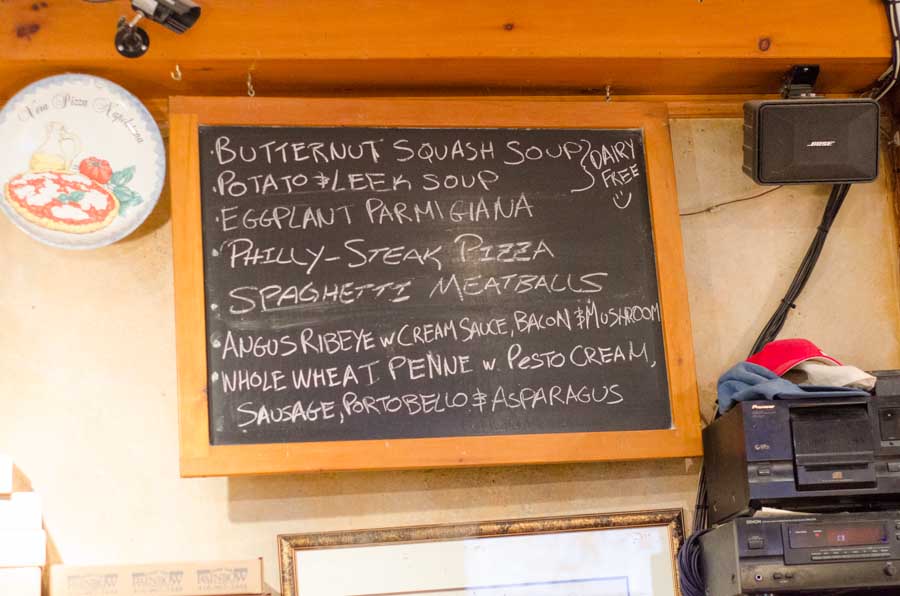 Vera Pizza Napoletana
· BUTTERNUT SQUASH SOUP
· POTATO & LEEK SOUP
DAIRY
FREE
· EGGPLANT PARMIGIANA
· PHILLY-STEAK PIZZA
· SPAGHETTI MEATBALLS
· ANGUS RIBEYE w CREAM SAUCE, BACON & MUSHROOM
· WHOLE WHEAT PENNE w PESTO CREAM,
SAUSAGE, PORTOBELLO & ASPARAGUS
BOSE
Pioneer
DENON
RAINBOW
RAINBOW
RAINBOW